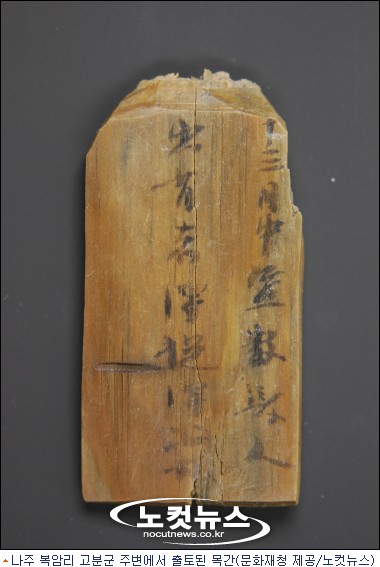 三月中監數人
出者得捉得
노컷뉴스
nocutnews.co.kr
▲나주 복암리 고분군 주변에서 출토된 목간(문화재청 제공/노컷뉴스)